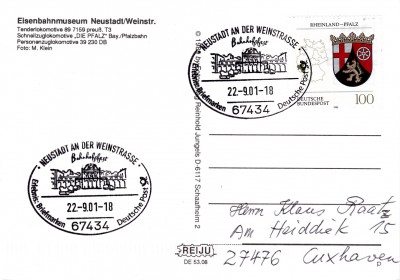 Eisenbahnmuseum Neustadt/Weinstr.
Tenderlokomotive 89 7159 preuß. T3
Schnellzuglokomotive „DIE PFALZ" Bay./Pfalzbahn
Personenzuglokomotive 39 230 DB
Foto: M. Klein
NEUSTADT AN DER WEINSTRASSE
Bahnhofsfest
22.-9.01-18
Erlebnis: Briefmarken
67434
Deutsche Post
RHEINLAND - PFALZ
DEUTSCHE BUNDESPOST
100
NEUSTADT AN DER WEINSTRASSE
Bahnhofsfest
22.-9.01-18
Erlebnis: Briefmarken
67434
Deutsche Post
Reinhold Jungels D-6117 Schaafheim 2
REIJU
DE 53.08
Herrn Klaus Raatz
Am Heiddiek 15
27476 Cuxhaven